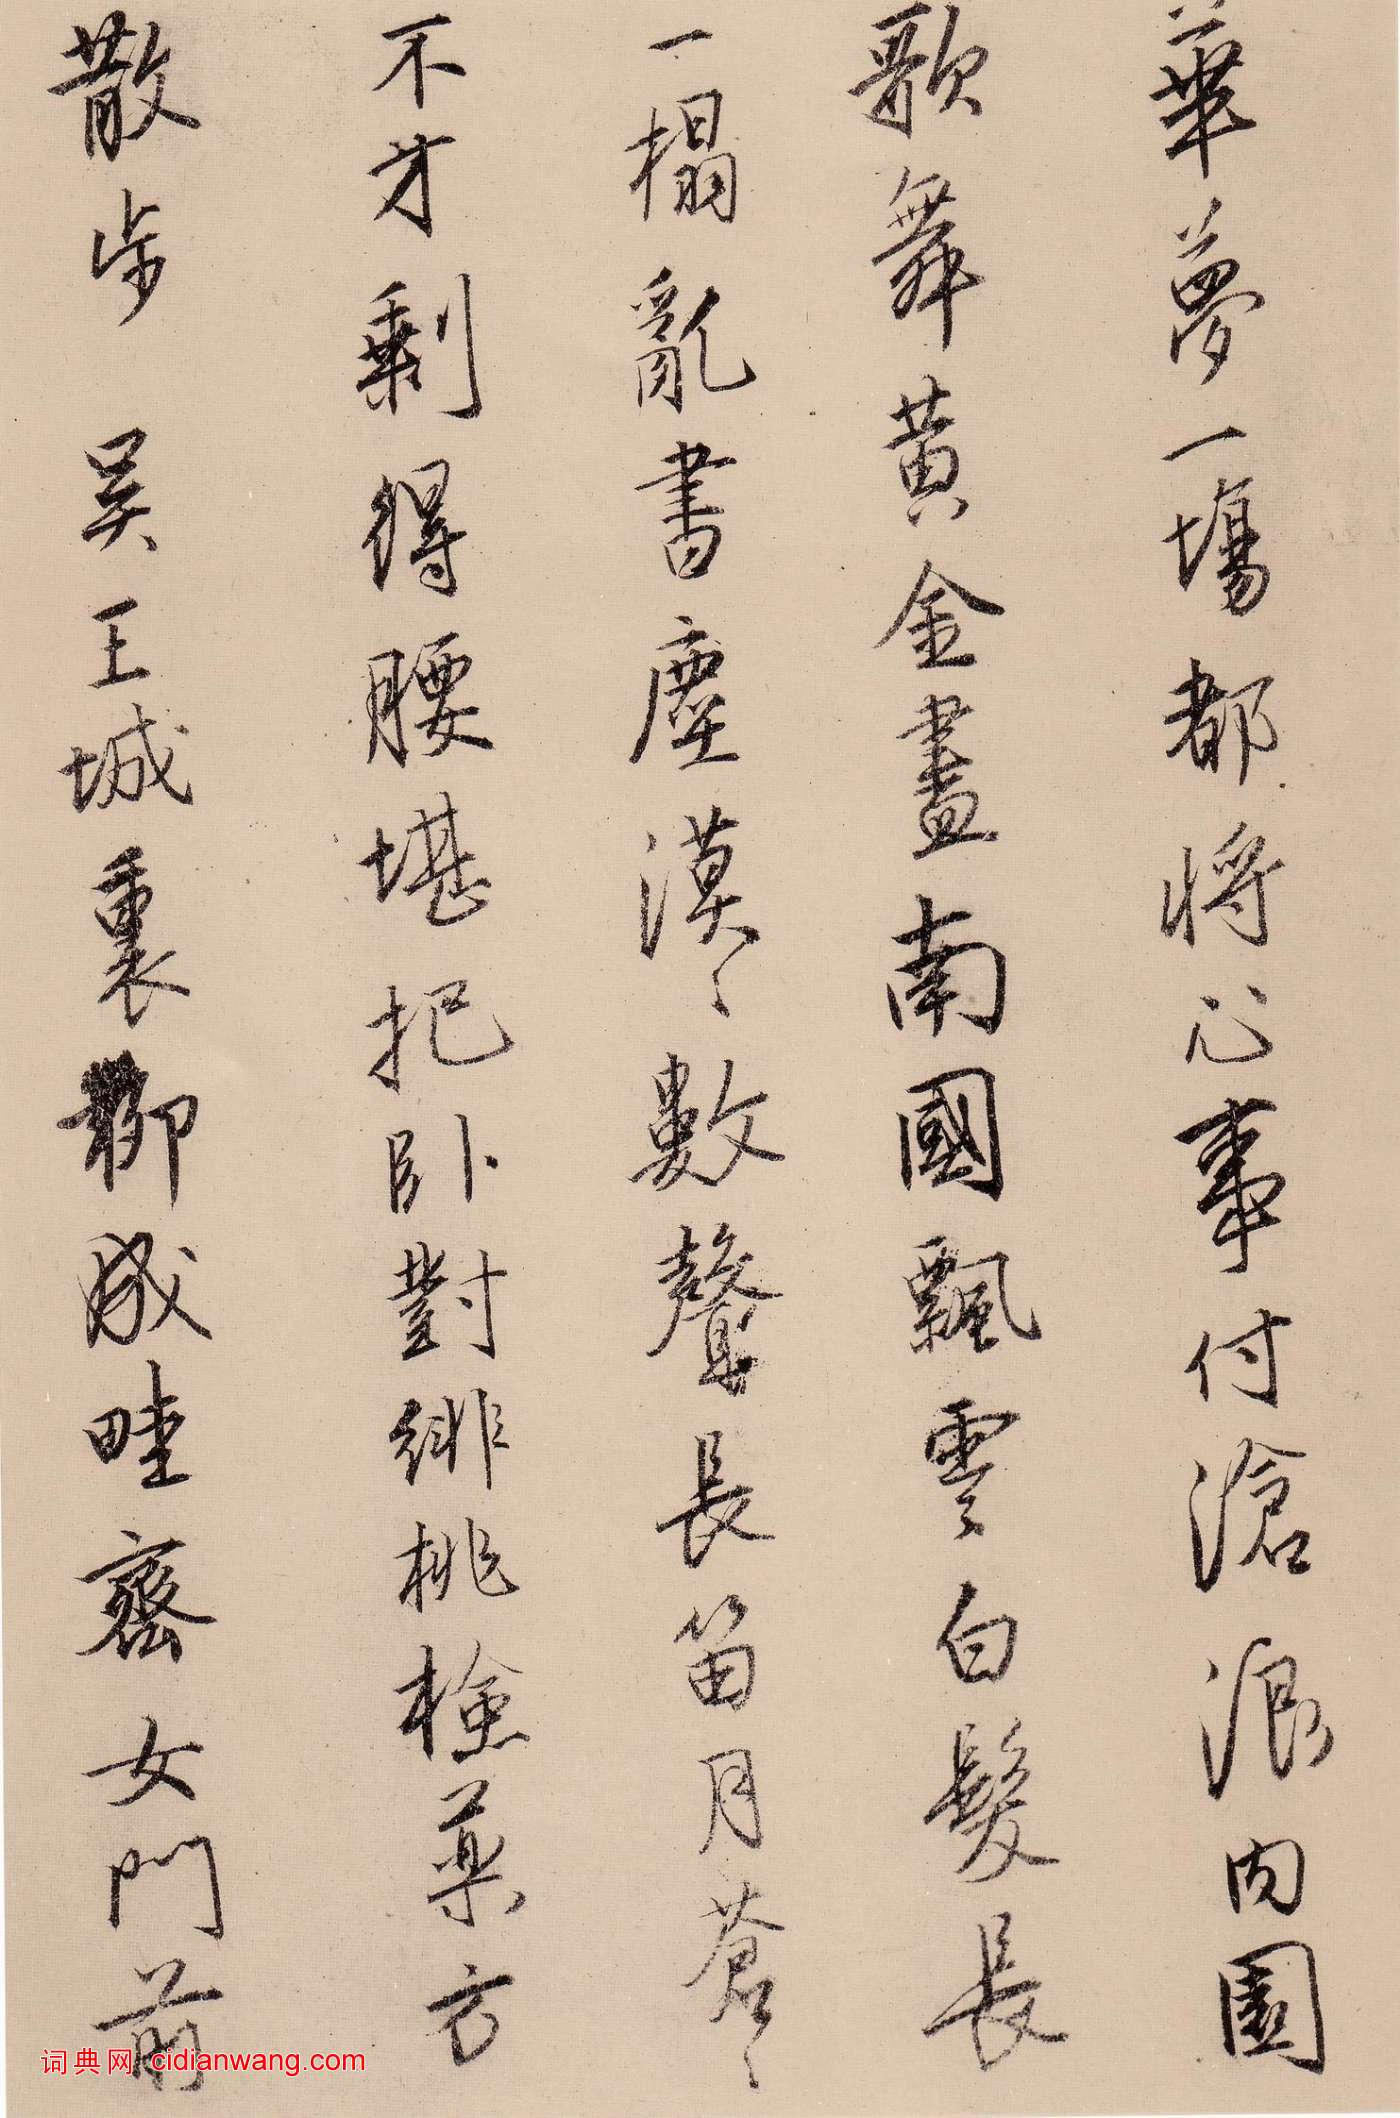 華夢一場都將心事付滄浪內園
歌舞黃金盡南國飄零白髮長
一榻亂書塵漠〻數聲長笛月蒼〻
不才剩得腰堪把臥對緋桃檢藥方
散步 吳王城裏柳成畦齊女門前
词典网 cidianwang.com